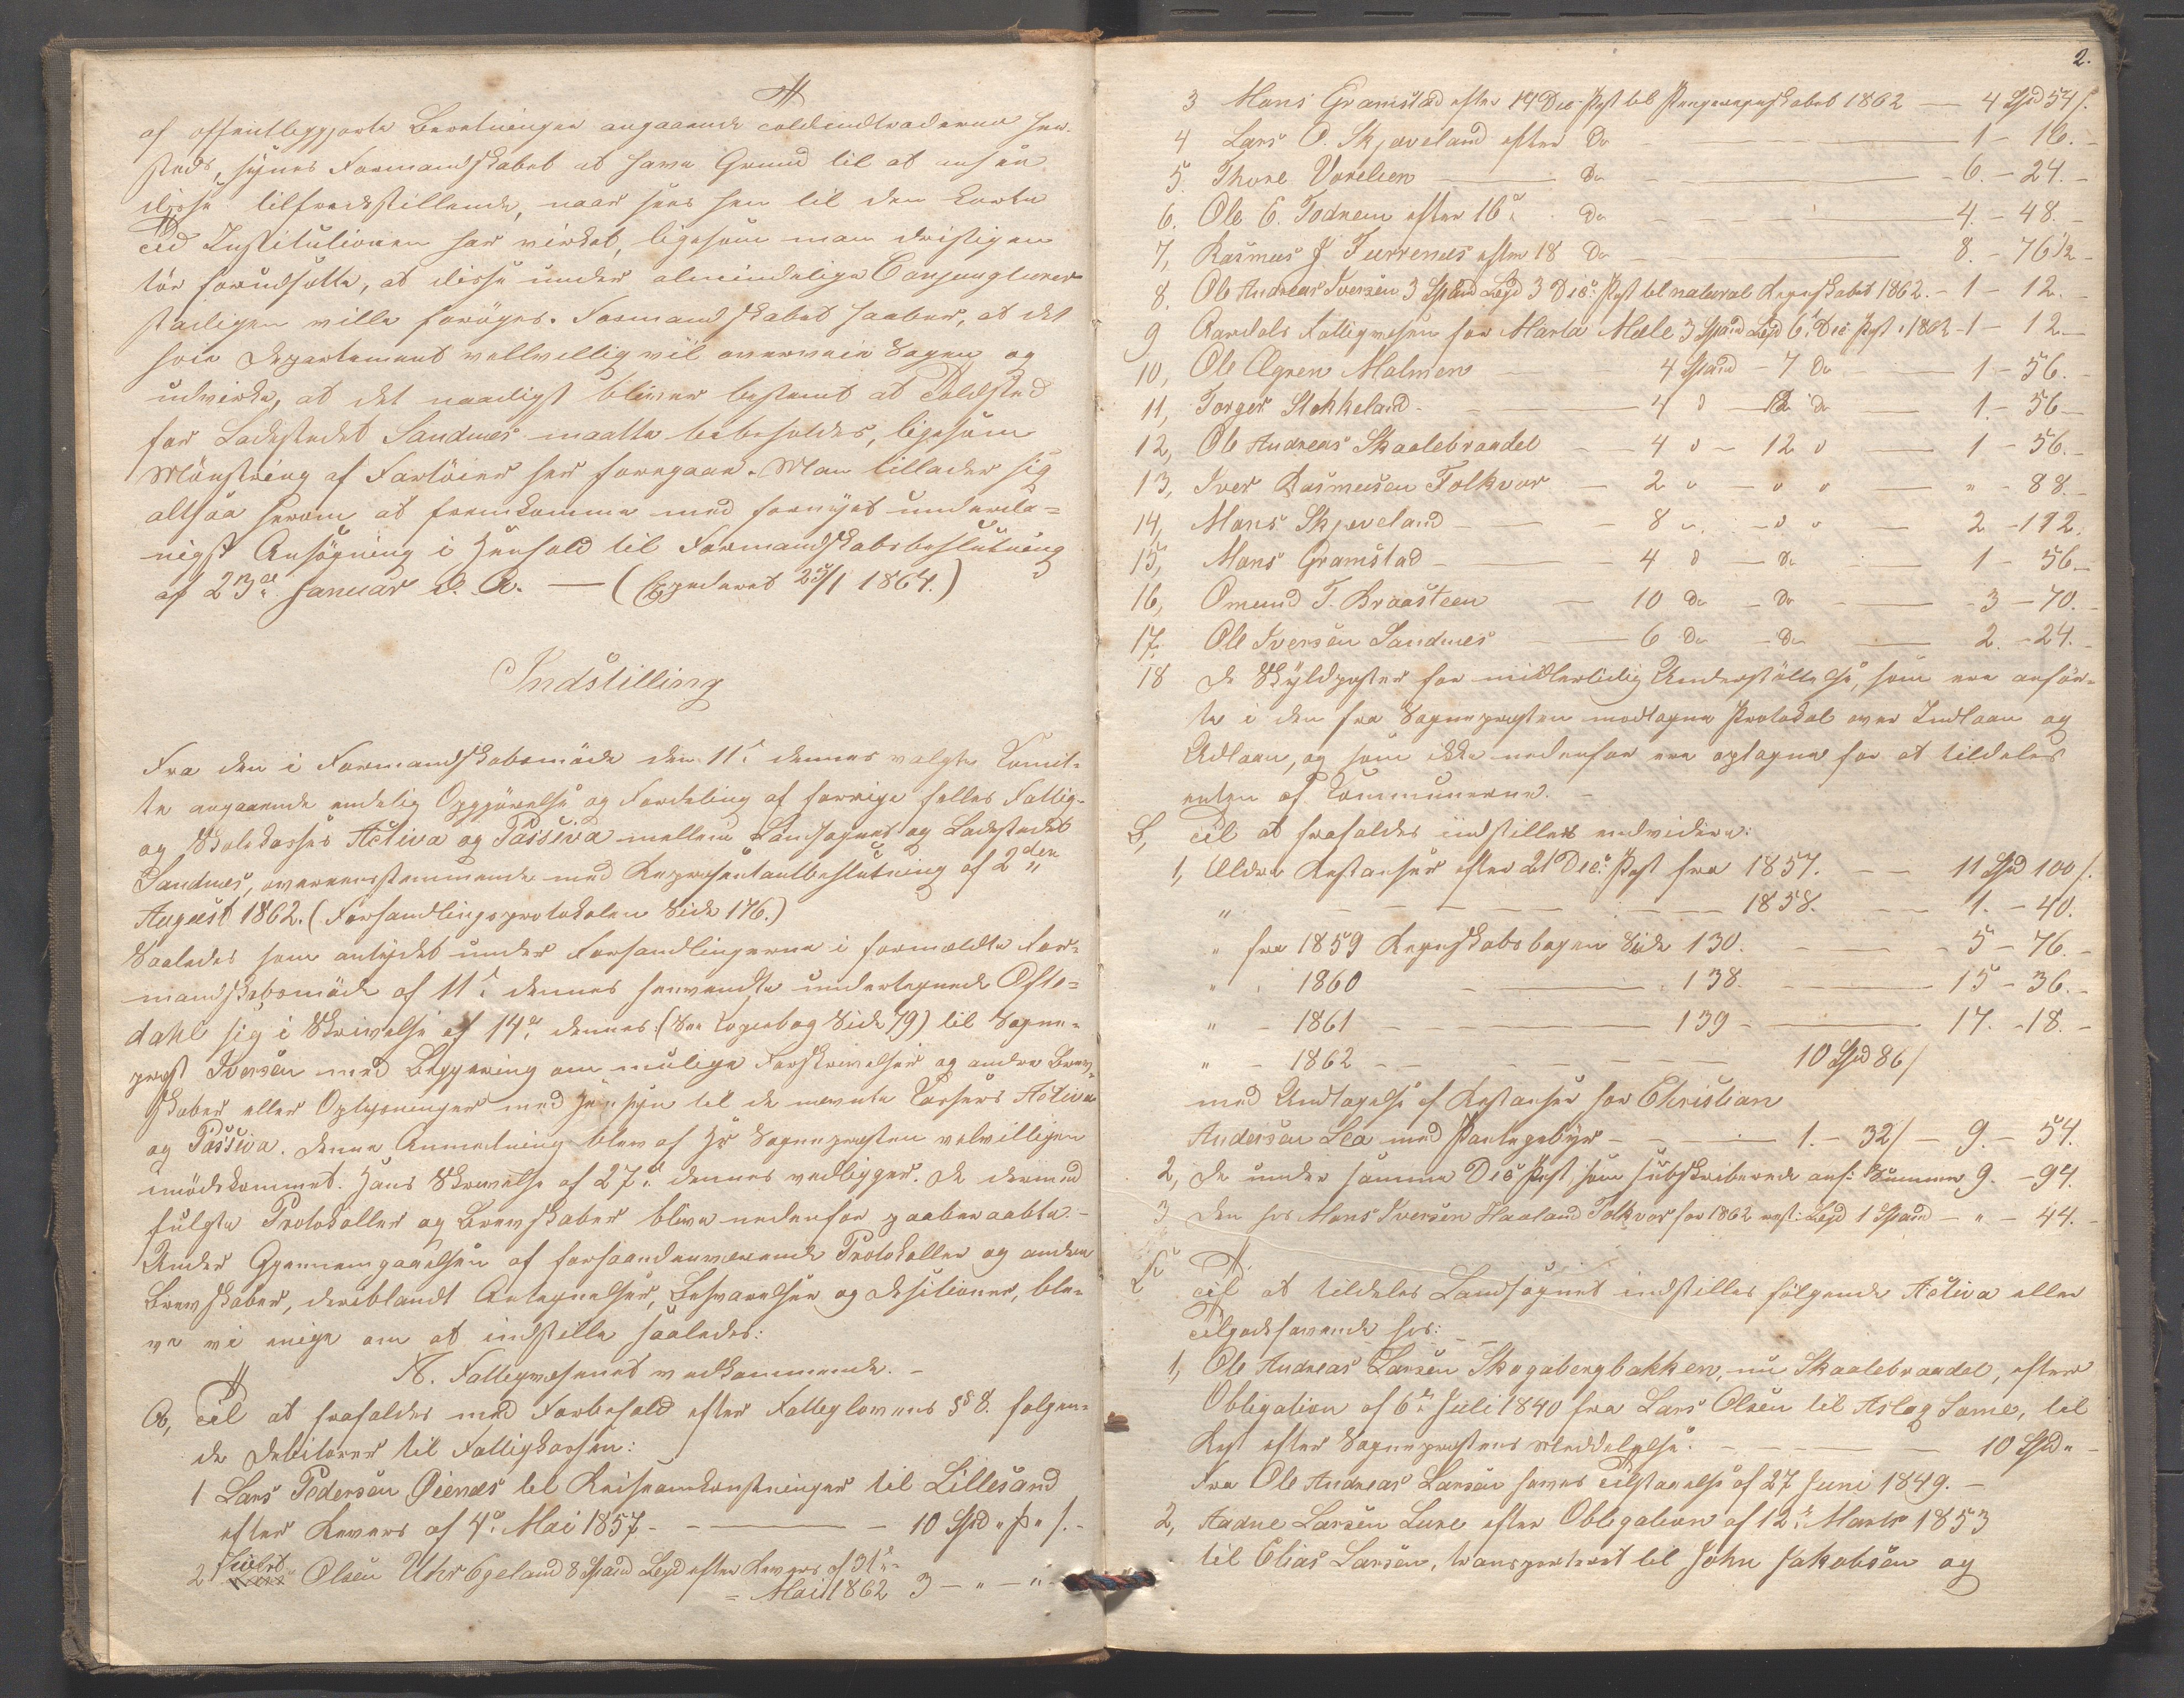 af offentliggjorte Beretninger angaaende toldindtraderne her-
steds, synes Formandskabet at have Grund til at ansee
disse tilfredsstillende, naar sees hen til den korte
Tid Institutionen har virket, ligesom man dristigen
tör forudsætte, at disse under almindelige Conjuncturer
stadigen ville foröges. Formandskabet haaber, at det
höie Departement velvillig vil overveie Sagen og
udvirke, at det naadigst bliver bestemt at Toldsted
for Ladestedet Sandnes maatte bibeholdes, ligesom
Mönstring af Fartöier her foregaar. Man tillader sig
altsaa herom at fremkomme med fornyet underda=
nigst Ansögning i Henhold til Formandskabsbeslutning
af 23de Januar d. A. — (Expederet 25/1 1864.)
Indstilling
Fra den i Formandskabsmöde den 11te dennes valgte Comit-
te angaaende endelig Opgjörelse og Fordeling af forrige fælles Fattig-
og Skolekasses Activa og Passiva mellem Landsognet og Ladestedet
Sandnes, overeensstemmende med Repræsentantbeslutning af 2den
August 1862. (Forhandlingsprotokolen Side 176.)
Saaledes som antydet under Forhandlingerne i formeldte For-
mandskabsmöde af 11te dennes henvendte undertegnede Ofte=
dahl sig i Skrivelse af 14de dennes: (See Copiebog Side 79) til Sogne-
præst Iversen med Begjæring om mulige Forskrivelser og andre Brev-
skaber eller Oplysninger med Hensyn til de nævnte Kassers Activa
og Passiva. Denne Anmodning blev af Hr Sognepræsten velvilligen
imödekommet. Hans Skrivelse af 27de dennes vedligger. De dermed
fulgte Protokoller og Brevskaber blive nedenfor paaberaabte. -
Under Gjennemgaaelsen af forhaandenværende Protokoller og andre
Brevskaber, deriblandt Antegnelser, Besvarelser og Desitioner, ble-
ve vi enige om at indstille saaledes:
A. Fattigvæsenet vedkommende. -
a, Til at frafaldes med Forbehold efter Fattiglovens § 8. følgen-
de Debitorer til Fattigkassen:
1 Lars Pedersen Øienes til Reiseomkostninger til Lillesand
efter Revers af 4de Mai 1857. - - — 10 Spd " þ " s. -
2 Sivert Olsen Uhr Egeland 8 Spand Legd efter Revers af 31te
= Mai 1862 3 — " — " -
2.
3 Mons Gramstad efter 14 Dec. Post til Pengeregnskabet 1862 — 4 Spd 54 s.
4 Lars O. Skjæveland efter Do — 1 - 16. -
5. Thore Vorelien — Do — 6. - 24. -
6. Ole E. Todnem efter 16de Do — 4. - 48. -
7, Rasmus J. Furrenes efter 18 Do — 8. - 76½ -
8. Ole Andreas Iversen 3 Spand Legd 3 Dec. Post til natural Regnskabet 1862. - 1 - 12. -
9 Aardals Fattigvæsen for Marta Mæle 3 Spand Legd 6te Dec. Post 1862 - 1 - 12. -
10, Ole Ogren Malmen — 4 Spand - 7 Do — 1 - 56. -
11, Torger Stokkeland. — 4 d - 12 Do — 1. - 56 -
12, Ole Andreas Skaalebrandel — 4 d - 12 d — 1 - 56. -
13, Iver Rasmusen Folkvor — 2 d - d d — " - 88. -
14, Mons Skjæveland — 8 " - d d — 2 - 112.
15, Mons Gramstad — 4 d - Do — 1 - 56. -
16, Omund T. Braasteen — 10 Do - Do — 3 - 70. -
17, Ole Iversen Sandnes — 6 Do - Do — 2. - 24. -
18 De Skyldposter for midlertidig Understöttelse, som ere anfør-
te i den fra Sognepræsten modtagne Protokol over Indlaan og
Udlaan, og som ikke nedenfor ere optagne for at tildeles
enten af Communerne. -
b, Til at frafaldes indstilles endvidere:
1, Ældre Restancer efter 21 Dec. Post fra 1857. - - 11 Spd 100 s.
" — 1858. - - 1. - 40.
" fra 1859 Regnskabsbogen Side 130. — 5 - 76. -
" " 1860 — 138. — 15 - 36. -
" - 1861 - — 139 - — 17. - 18. -
" - 1862 - — 10 Spd 86 s
med Undtagelse af Restancer for Christian
Andersen Lea med Pantegebyr — 1. - 32 s — 9. - 54.
2, De under samme Dec Post som subskriberede anf: Summer 9. - 94.
3, Den hos Mons Iversen Haaland Folkvor for 1862 rest: Legd 1 Spand — " - 44. -
c
Til at tildeles Landsognet indstilles fölgende Activa eller
Tilgodehavende hos:
1, Ole Andreas Larsen Skogabergbakken, nu Skaalebrandel, efter
Obligation af 6te Juli 1840 fra Lars Olsen til Aslag Some, til
Rest efter Sognepræstens Meddelelse. — 10 Spd " -
Fra Ole Andreas Larsen haves Tilstaaelse af 27 Juni 1849. -
2, Aadne Larsen Lure efter Obligation af 12te Marts 1853
til Elias Larsen, transporteret til John Jakobsen og